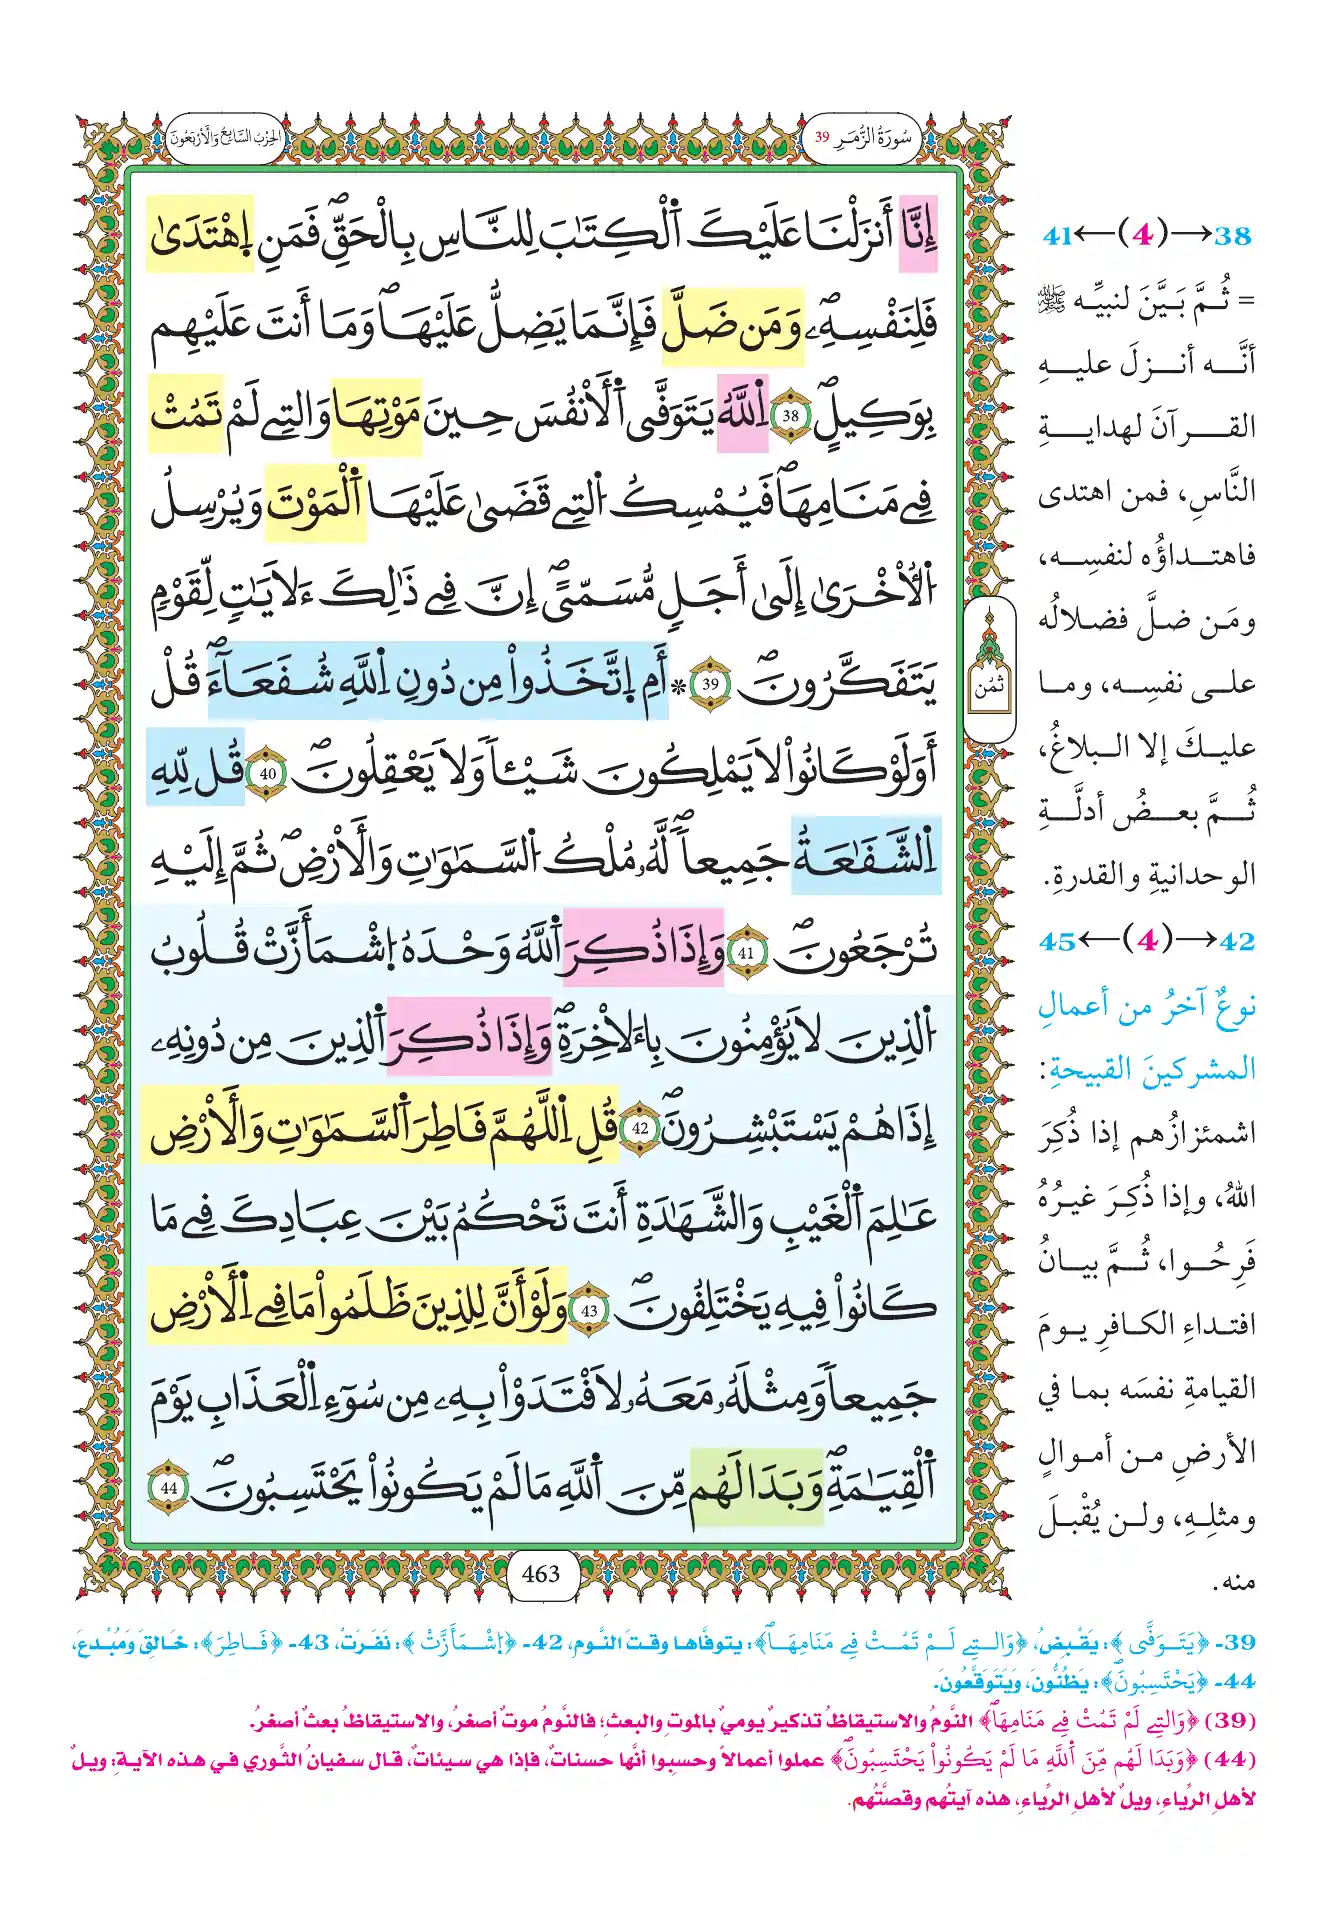 سُورَةُ الزُّمَرِ 39
الحِزْبُ السَّابِعُ وَالأَرْبَعُونَ
إِنَّا أَنزَلْنَا عَلَيْكَ اَ۬لْكِتَٰبَ لِلنَّاسِ بِالْحَقِّۖ فَمَنِ اِ۪هْتَد۪ىٰ
فَلِنَفْسِهِۦۖ وَمَن ضَلَّ فَإِنَّمَا يَضِلُّ عَلَيْهَاۖ وَمَا أَنتَ عَلَيْهِم
بِوَكِيلٍۖ 38 اِ۬للَّهُ يَتَوَفَّى اَ۬لْأَنفُسَ حِينَ مَوْتِهَا وَالتِے لَمْ تَمُتْ
فِے مَنَامِهَاۖ فَيُمْسِكُ اُ۬لتِے قَضَىٰ عَلَيْهَا اَ۬لْمَوْتَ وَيُرْسِلُ
اُ۬لْأُخْر۪ىٰ إِلَىٰ أَجَلٖ مُّسَمّىًۖ إِنَّ فِے ذَٰلِكَ ءَلَايَٰتٖ لِّقَوْمٖ
يَتَفَكَّرُونَۖ 39 * أَمِ اِ۪تَّخَذُواْ مِن دُونِ اِ۬للَّهِ شُفَعَآءَۖ قُلْ
أَوَلَوْ كَانُواْ لَا يَمْلِكُونَ شَيْـٔاٗ وَلَا يَعْقِلُونَۖ 40 قُل لِّلهِ
اِ۬لشَّفَٰعَةُ جَمِيعاٗۖ لَّهُۥ مُلْكُ اُ۬لسَّمَٰوَٰتِ وَالْأَرْضِۖ ثُمَّ إِلَيْهِ
تُرْجَعُونَۖ 41 وَإِذَا ذُكِرَ اَ۬للَّهُ وَحْدَهُ اُ۪شْمَأَزَّتْ قُلُوبُ
اُ۬لذِينَ لَا يُؤْمِنُونَ بِالَاخِرَةِۖ وَإِذَا ذُكِرَ اَ۬لذِينَ مِن دُونِهِۦ
إِذَا هُمْ يَسْتَبْشِرُونَۖ 42 قُلِ اِ۬للَّهُمَّ فَاطِرَ اَ۬لسَّمَٰوَٰتِ وَالْأَرْضِ
عَٰلِمَ اَ۬لْغَيْبِ وَالشَّهَٰدَةِ أَنتَ تَحْكُمُ بَيْنَ عِبَادِكَ فِے مَا
كَانُواْ فِيهِ يَخْتَلِفُونَۖ 43 وَلَوْ أَنَّ لِلذِينَ ظَلَمُواْ مَا فِے اِ۬لْأَرْضِ
جَمِيعاٗ وَمِثْلَهُۥ مَعَهُۥ لَافْتَدَوْاْ بِهِۦ مِن سُوٓءِ اِ۬لْعَذَابِ يَوْمَ
اَ۬لْقِيَٰمَةِۖ وَبَدَا لَهُم مِّنَ اَ۬للَّهِ مَا لَمْ يَكُونُواْ يَحْتَسِبُونَۖ 44
ثمُن
463
38→(4)←41
= ثُمَّ بَيَّنَ لنبيِّه ﷺ
أنَّه أنزلَ عليهِ
القرآنَ لهدايةِ
النَّاسِ، فمن اهتدى
فاهتداؤُه لنفسِه،
ومَن ضلَّ فضلالُه
على نفسِه، وما
عليكَ إلا البلاغُ،
ثُمَّ بعضُ أدلَّةِ
الوحدانيةِ والقدرةِ.
42→(4)←45
نوعٌ آخرُ من أعمالِ
المشركينَ القبيحةِ:
اشمئزازُهم إذا ذُكِرَ
اللهُ، وإذا ذُكِرَ غيرُهُ
فَرِحُوا، ثُمَّ بيانُ
افتداءِ الكافرِ يومَ
القيامةِ نفسَه بما في
الأرضِ من أموالٍ
ومثلِهِ، ولن يُقْبلَ
منه.
39- ﴿يَتَوَفَّى﴾: يَقْبِضُ، ﴿وَالتِے لَمْ تَمُتْ فِے مَنَامِهَاۖ﴾: يتوفَّاها وقتَ النَّوم، 42- ﴿اِ۪شْمَأَزَّتْ﴾: نَفَرَتْ، 43- ﴿فَاطِرَ﴾: خَالِقَ وَمُبْدعَ،
44- ﴿يَحْتَسِبُونَۖ﴾: يَظُنُّونَ، وَيَتَوَقَّعُونَ.
(39) ﴿وَالتِے لَمْ تَمُتْ فِے مَنَامِهَاۖ﴾ النَّومُ والاستيقاظُ تذكيرٌ يوميٌّ بالموتِ والبعثِ؛ فالنَّومُ موتٌ أصغرُ، والاستيقاظُ بعثٌ أصغرُ.
(44) ﴿وَبَدَا لَهُم مِّنَ اَ۬للَّهِ مَا لَمْ يَكُونُواْ يَحْتَسِبُونَۖ﴾ عملوا أعمالاً وحسِبوا أنَّها حسناتٌ، فإذا هي سيئاتٌ، قال سفيانُ الثَّوري في هذه الآيةِ: ويلٌ
لأهلِ الرِّياءِ، ويلٌ لأهلِ الرِّياءِ، هذه آيتُهم وقصَّتُهم.